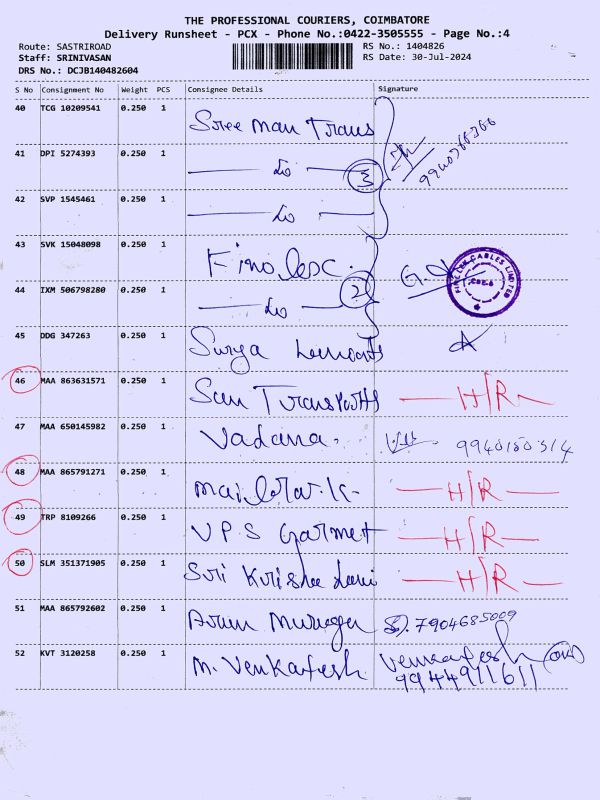 THE PROFESSIONAL COURIERS, COIMBATORE
Delivery Runsheet - PCX - Phone No.:0422-3505555 - Page No.:4
Route: SASTRIROAD RS No.: 1404826
Staff: SRINIVASAN RS Date: 30-Jul-2024
DRS No.: DCJB140482604
S No Consignment No Weight PCS Consignee Details Signature
40 TCG 10209541 0.250 1 Sree Man Trans
41 DPI 5274393 0.250 1 3
42 SVP 1545461 0.250 1
43 SVK 15048098 0.250 1 Finolex
44 IXM 506798280 0.250 1 2
FINOLEX CABLES LIMITED
45 DDG 347263 0.250 1 Surya
46 MAA 863631571 0.250 1 San Transports H/R
47 MAA 650145982 0.250 1 Vadana. 9940180514
48 MAA 865791271 0.250 1 H/R
49 TRP 8109266 0.250 1 V.P.S Garment H/R
50 SLM 351371905 0.250 1 Sri Krishna H/R
51 MAA 865792602 0.250 1 Arun Muruga 7904685009
52 KVT 3120258 0.250 1 M. Venkatesh Venkatesh
9944911611